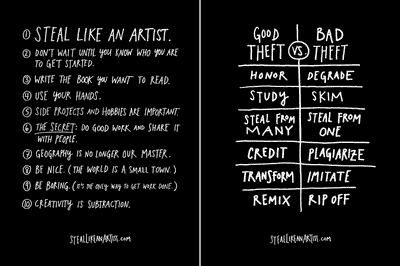 ① STEAL LIKE AN ARTIST.
② DON'T WAIT UNTIL YOU KNOW WHO YOU ARE
TO GET STARTED.
③ WRITE THE BOOK YOU WANT TO READ.
④ USE YOUR HANDS.
⑤ SIDE PROJECTS AND HOBBIES ARE IMPORTANT.
⑥ THE SECRET: DO GOOD WORK AND SHARE IT
WITH PEOPLE.
⑦ GEOGRAPHY IS NO LONGER OUR MASTER.
⑧ BE NICE. (THE WORLD IS A SMALL TOWN.)
⑨ BE BORING. (IT'S THE ONLY WAY TO GET WORK DONE.)
⑩ CREATIVITY IS SUBTRACTION.
STEALLIKEANARTIST.com
GOOD THEFT VS BAD THEFT
HONOR DEGRADE
STUDY SKIM
STEAL FROM MANY STEAL FROM ONE
CREDIT PLAGIARIZE
TRANSFORM IMITATE
REMIX RIP OFF
STEALLIKEANARTIST.com